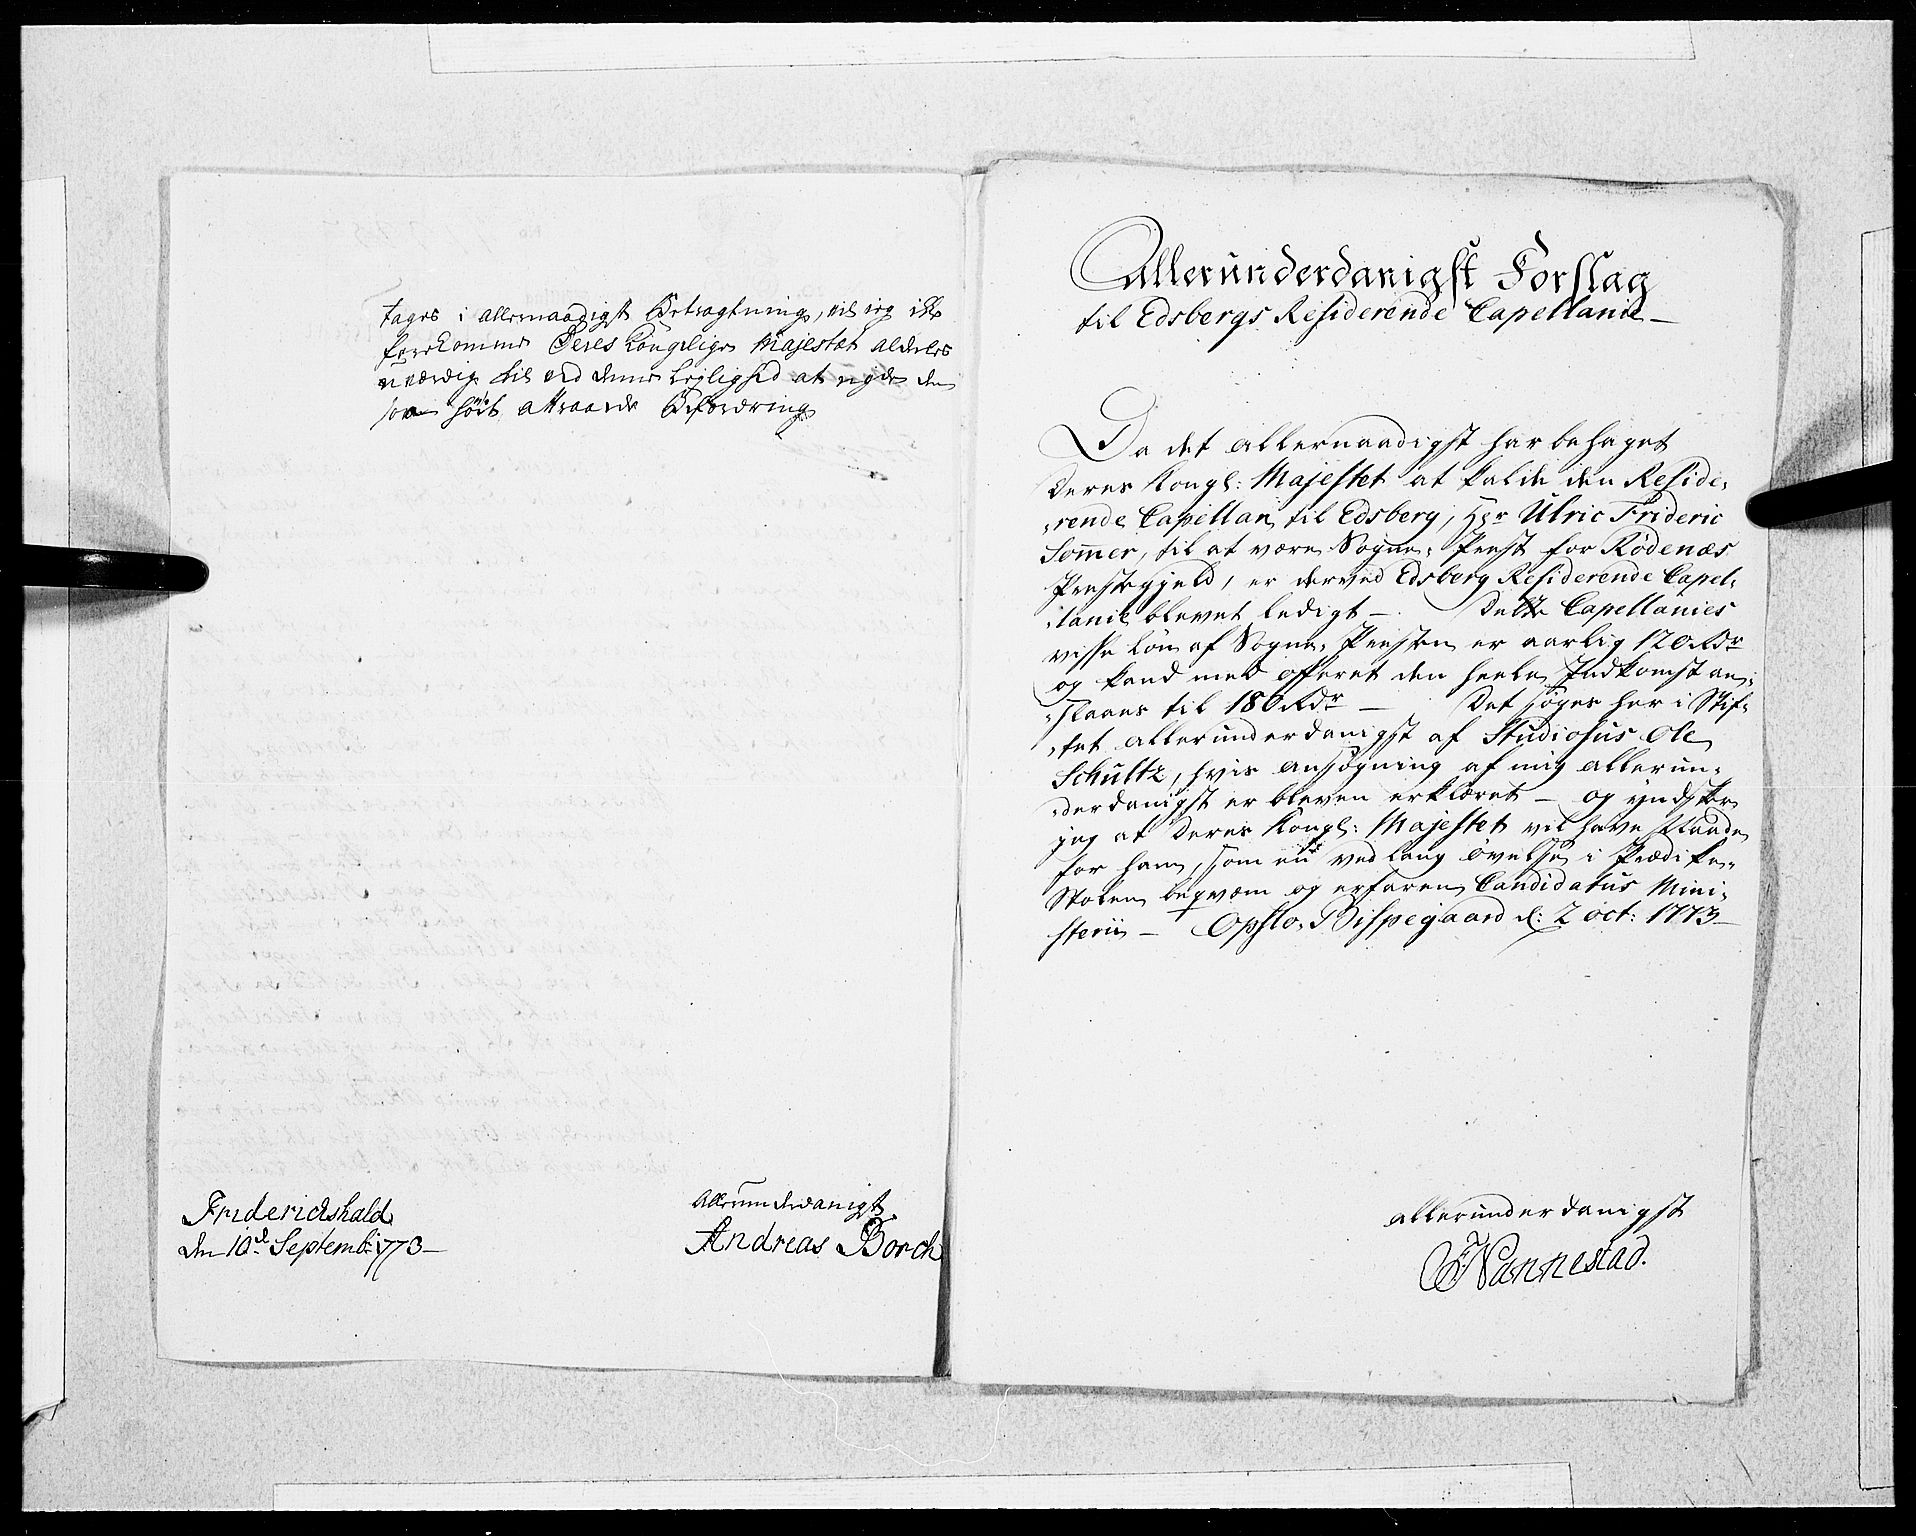 tages i allernaadigst Betragtning, vil jeg ikke
forekomme Deres Kongelige Majestæt aldeles
uværdig til ved denne Lejlighed at nyde den
saa høit attraaede Befordring
Friderichshald
den 10d. Septembr: 1773
Allerunderdanigst
Andreas Borch
Allerunderdanigst Forslag
til Edsbergs Residerende Capellanie
Da det allernaadigst har behaget
Deres Kongl: Majestet at kalde den Reside-
-rende Capellan til Edsberg, Hr Ulric Frideric
Somer, til at være Sogne-Præst for Rødenæs
Præstegjeld, er derved Edsberg Residerende Capel-
-lanie blevet ledigt — Dette Capellanies
visse Løn af Sogne-Præsten er aarlig 120 Rdr
og kand med Offeret den heele Indkomst an-
-slaaes til 180 Rdr — Det søges her i Stif-
-tet allerunderdanigst af Studiosus Ole
Schultz, hvis ansøgning af mig allerun-
-derdanigst er bleven erklæret — og yndsker
jeg at Deres Kongl: Majestet vil have Naade
for ham, som en ved lang øvelse i Prædike-
Stolen beqvem og erfaren Candidatus Mini-
sterii — Opslo-Bispegaard d: 2 oct: 1773
allerunderdanigst
F Nannestad.